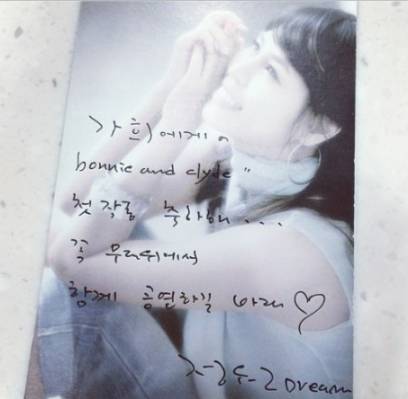 가희에게 "
bonnie and clyde"
첫작품 축하해...
꼭 무대위에서
함께 공연하길 바래 ♡
Dream